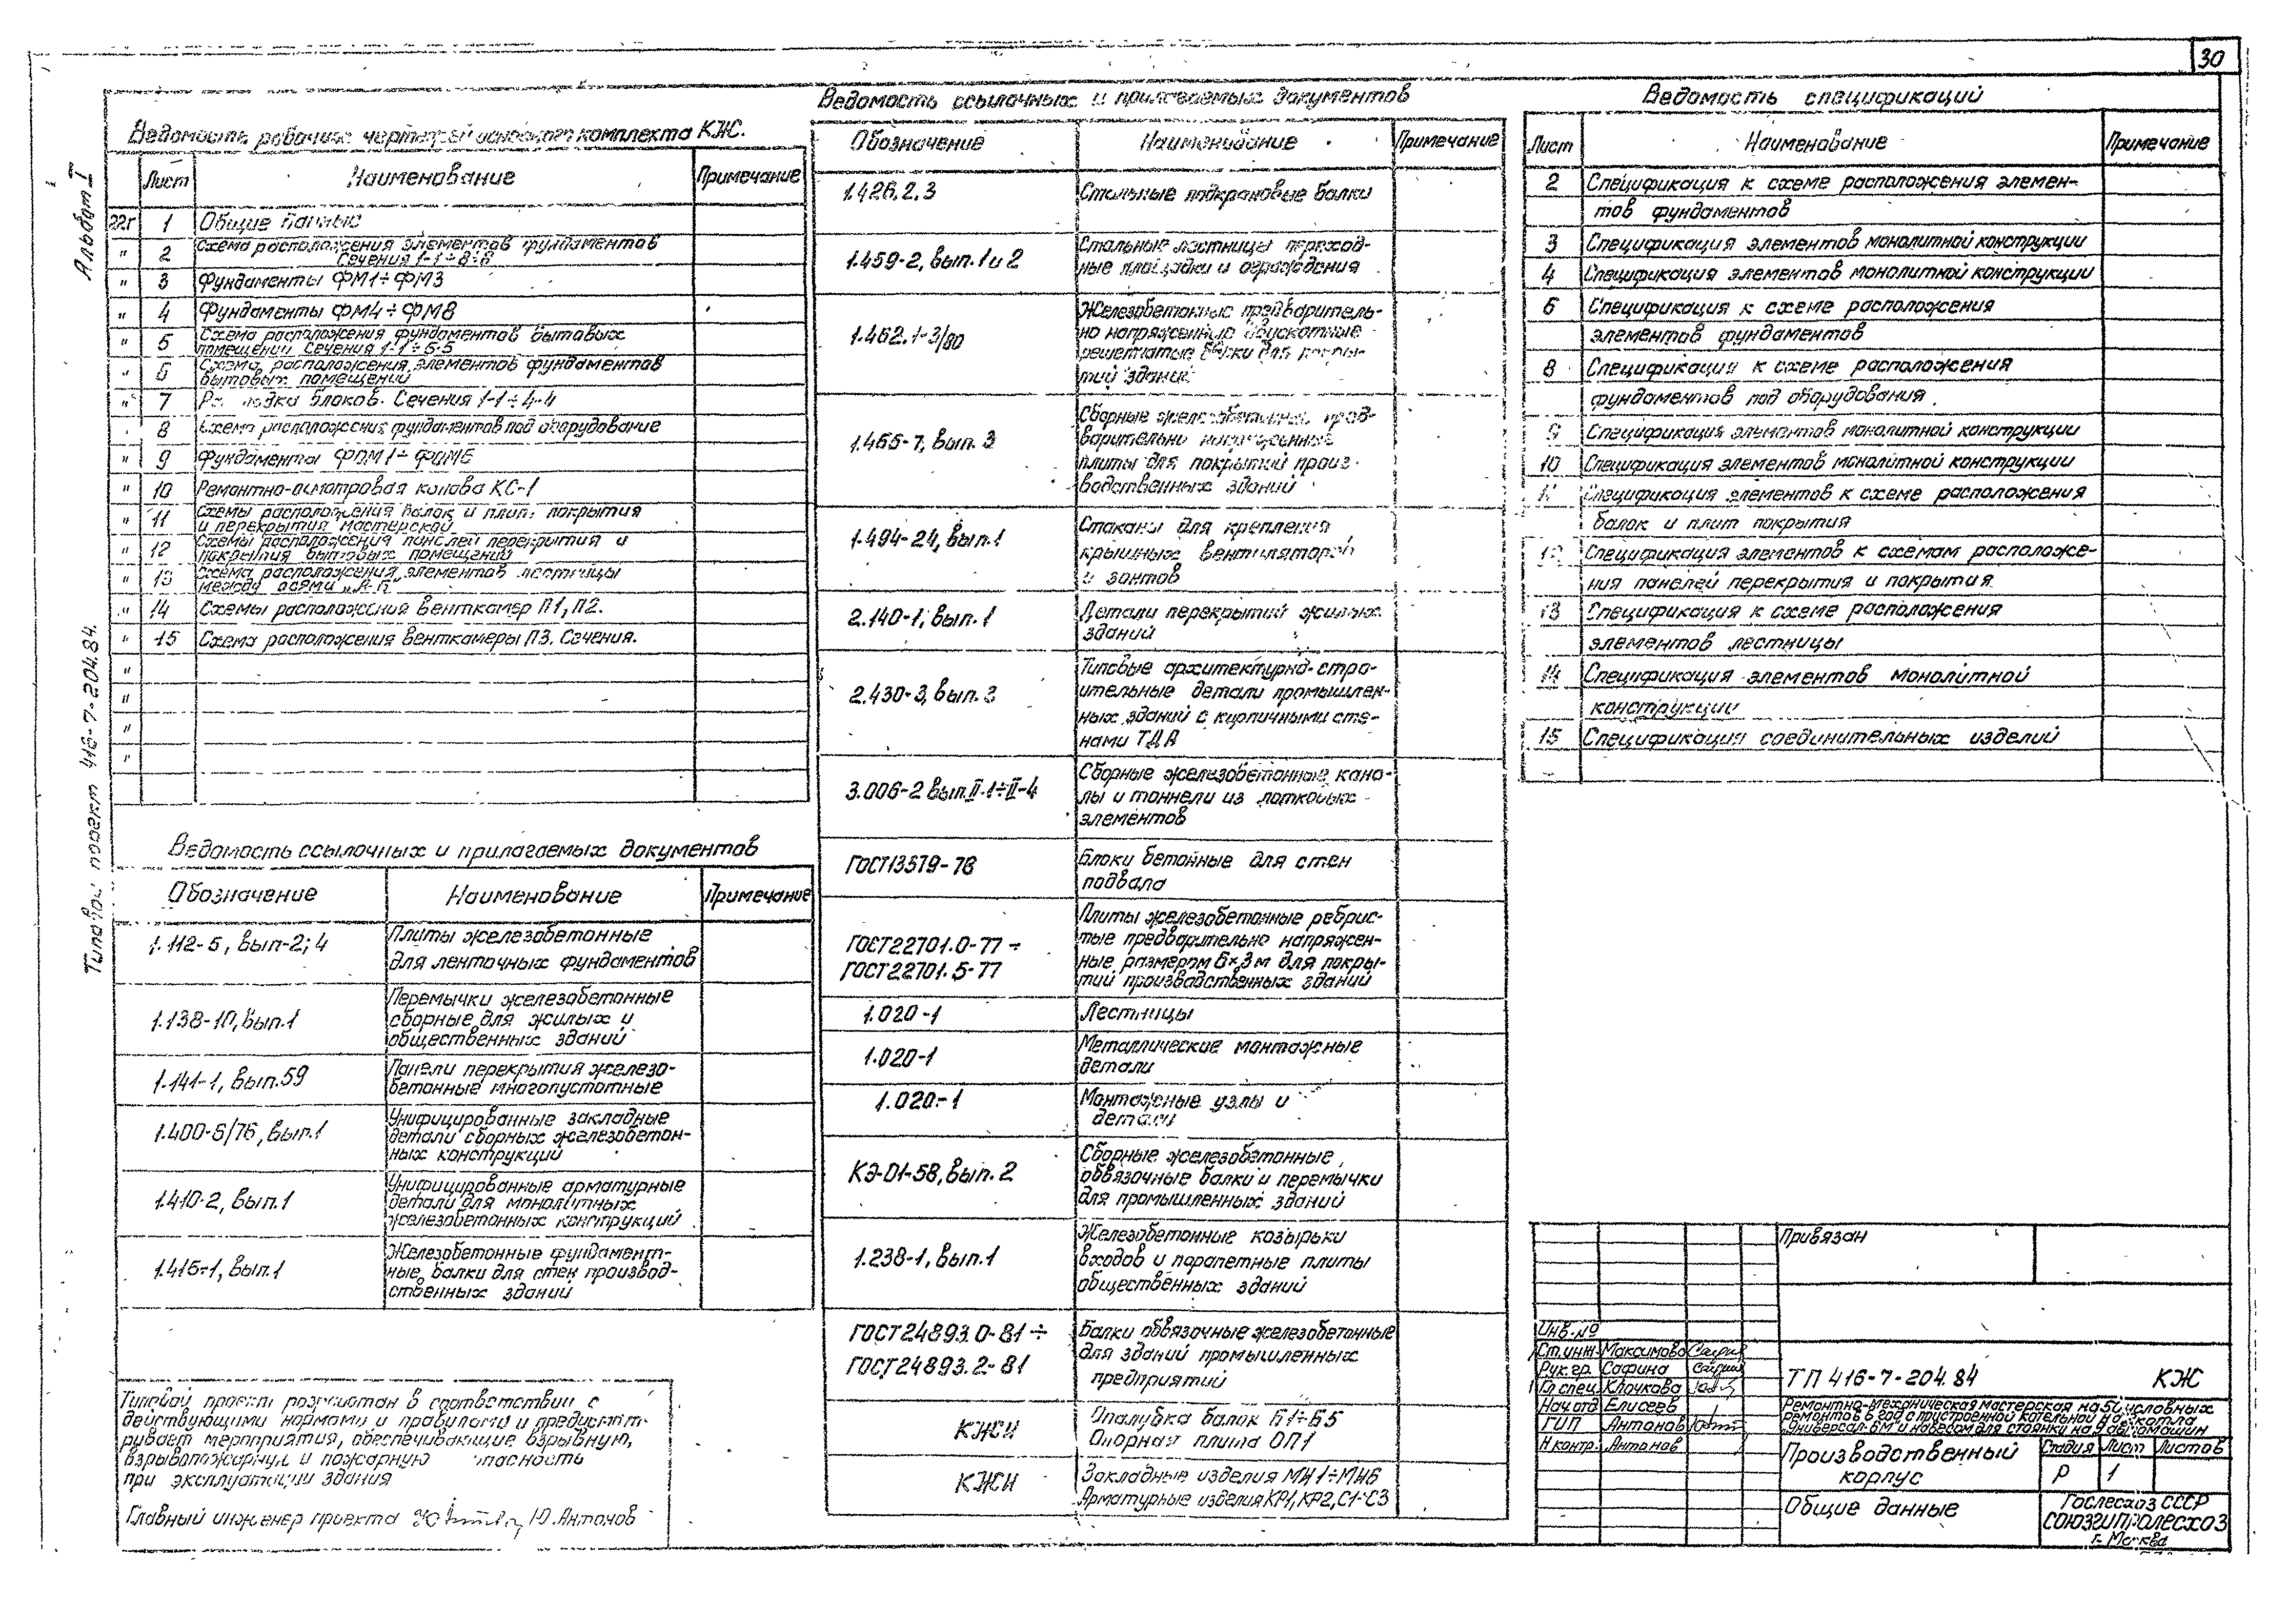 30
Альбом I
Типовой проект 416-7-204.84.
Ведомость рабочих чертежей основного комплекта КЖ.
Лист Наименование Примечание
22г 1 Общие данные
" 2 Схема расположения элементов фундаментов
Сечения 1-1÷8-8
" 3 Фундаменты ФМ1÷ФМ3
" 4 Фундаменты ФМ4÷ФМ8
" 5 Схема расположения фундаментов бытовых
помещений Сечения 1-1÷5-5
" 6 Схема расположения элементов фундаментов
бытовых помещений
" 7 блоков. Сечения 1-1÷4-4
8 Схема расположения фундаментов под оборудование
" 9 Фундаменты ФОМ1÷ФОМ6
" 10 Ремонтно-осмотровая канава КС-1
" 11 Схемы расположения балок и плит покрытия
и перекрытия мастерской
" 12 Схемы расположения панелей перекрытия и
покрытия бытовых помещений
" 13 Схема расположения элементов лестницы
между осями „А-Б"
" 14 Схемы расположения венткамер П1, П2.
" 15 Схема расположения венткамеры П3. Сечения.
"
"
"
"
Ведомость ссылочных и прилагаемых документов
Обозначение Наименование Примечание
1.112-5, вып-2; 4 Плиты железобетонные
для ленточных фундаментов
1.138-10, вып.1 Перемычки железобетонные
сборные для жилых и
общественных зданий
1.141-1, вып.59 Панели перекрытия железо-
бетонные многопустотные
1.400-6/76, вып.1 Унифицированные закладные
детали сборных железобетон-
ных конструкций
1.410-2, вып.1 Унифицированные арматурные
детали для монолитных
железобетонных конструкций
1.415-1, вып.1 Железобетонные фундамент-
ные балки для стен производ-
ственных зданий
Типовой проект разработан в соответствии с
действующими нормами и правилами и предусмат-
ривает мероприятия, обеспечивающие взрывную,
взрывопожарную и пожарную
при эксплуатации здания
Главный инженер проекта Ю. Антонов
Ведомость ссылочных и прилагаемых документов
Обозначение Наименование Примечание
1.426.2.3 Стальные подкрановые балки
1.459-2, вып.1 и 2 Стальные лестницы переход-
ные площадки и ограждения
1.462.1-3/80 Железобетонные предваритель-
но напряженные двускатные
решетчатые балки для покры-
тий зданий
1.465-7, вып. 3 Сборные железобетонные пред-
варительно напряженные
плиты для покрытий произ-
водственных зданий
1.494-24, вып.1 Стаканы для крепления
крышных вентиляторов
и зонтов
2.140-1, вып.1 Детали перекрытий жилых
зданий
2.430-3, вып. 3 Типовые архитектурно-стро-
ительные детали промышлен-
ных зданий с кирпичными сте-
нами ТДА
3.006-2 вып.II-1÷II-4 Сборные железобетонные кана-
лы и тоннели из лотковых
элементов
ГОСТ13579-78 Блоки бетонные для стен
подвала
ГОСТ22701.0-77 ÷
ГОСТ22701.5-77
Плиты железобетонные ребрис-
тые предварительно напряжен-
ные размером 6×3м для покры-
тий производственных зданий
1.020-1 Лестницы
1.020-1 Металлические монтажные
детали
1.020-1 Монтажные узлы и
детали
КЭ-01-58, вып. 2 Сборные железобетонные
обвязочные балки и перемычки
для промышленных зданий
1.238-1, вып.1 Железобетонные козырьки
входов и парапетные плиты
общественных зданий
ГОСТ24893.0-81 ÷
ГОСТ24893.2-81
Балки обвязочные железобетонные
для зданий промышленных
предприятий
КЖИ Опалубка балок Б1÷Б5
Опорная плита ОП1
КЖИ Закладные изделия МН1÷МН6
Арматурные изделия КР1, КР2, С1÷С3
Ведомость спецификаций
Лист Наименование Примечание
2 Спецификация к схеме расположения элемен-
тов фундаментов
3 Спецификация элементов монолитной конструкции
4 Спецификация элементов монолитной конструкции
6 Спецификация к схеме расположения
элементов фундаментов
8 Спецификация к схеме расположения
фундаментов под оборудования.
9 Спецификация элементов монолитной конструкции
10 Спецификация элементов монолитной конструкции
11 Спецификация элементов к схеме расположения
балок и плит покрытия
12 Спецификация элементов к схемам расположе-
ния панелей перекрытия и покрытия.
13 Спецификация к схеме расположения
элементов лестницы
14 Спецификация элементов монолитной
конструкции
15 Спецификация соединительных изделий
Привязан
Инв.№
Ст.инж. Максимова
Рук.гр. Сафина
Гл.спец. Клочкова
Нач.отд. Елисеев
ГИП Антонов
Н.контр. Антонов
ТП 416-7-204.84 КЖ
Ремонтно-механическая мастерская на 50 условных
ремонтов в год с пристроенной котельной на котла
Универсал-6М и навесом для стоянки на 9 автомашин
Производственный
корпус
Стадия Лист Листов
Р 1
Общие данные
Гослесхоз СССР
СОЮЗГИПРОЛЕСХОЗ
г. Москва